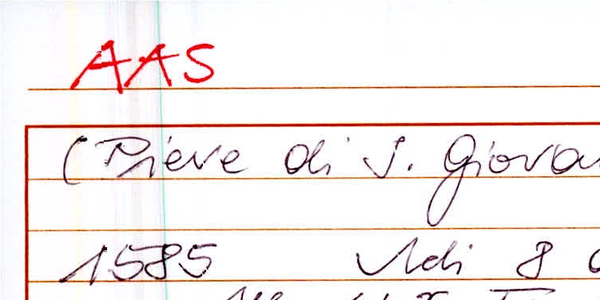 AAS
(Pieve di S. Giova
1585 Adi 8